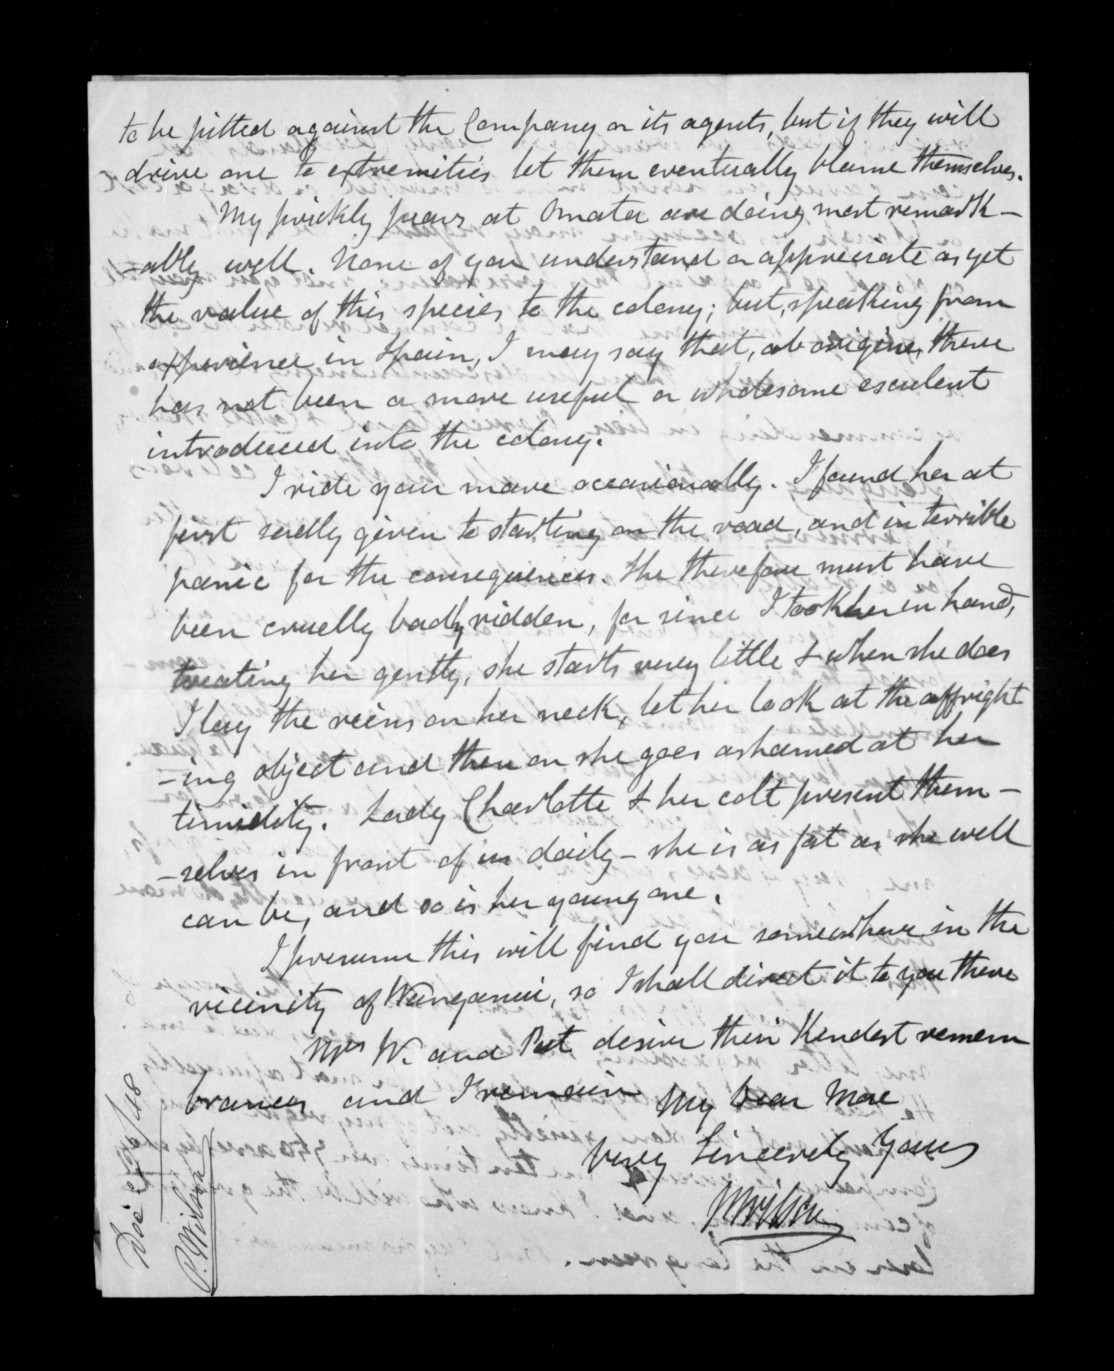 to be pitted against the Company or its agents, but if they will
drive one to extremities let them eventually blame themselves.
My prickly pears at Omata are doing most remark-
-ably well. None of you understand or appreciate as yet
the value of this species to the colony; but, speaking from
experience in Spain, I may say that, ab origine, there
has not been a more useful or wholesome esculent
introduced into the colony.
I ride your mare occasionally. I found her at
first sadly given to starting on the road, and in terrible
panic for the consequences. She therefore must have
been cruelly badly ridden, for since I took her in hand,
treating her gently, she starts very little & when she does
I lay the reins on her neck, let her look at the affright
-ing object and then on she goes ashamed at her
timidity. Lady Charlotte & her colt present them-
-selves in front of us daily - she is as fat as she well
can be, and so is her young one.
I presume this will find you somewhere in the
vicinity of Wanganui, so I shall direct it to you there
Mrs W. and Pat desire their kindest remem
brances and I remain My Dear Mac
Very Sincerely Yours
P Wilson
P. Wilson